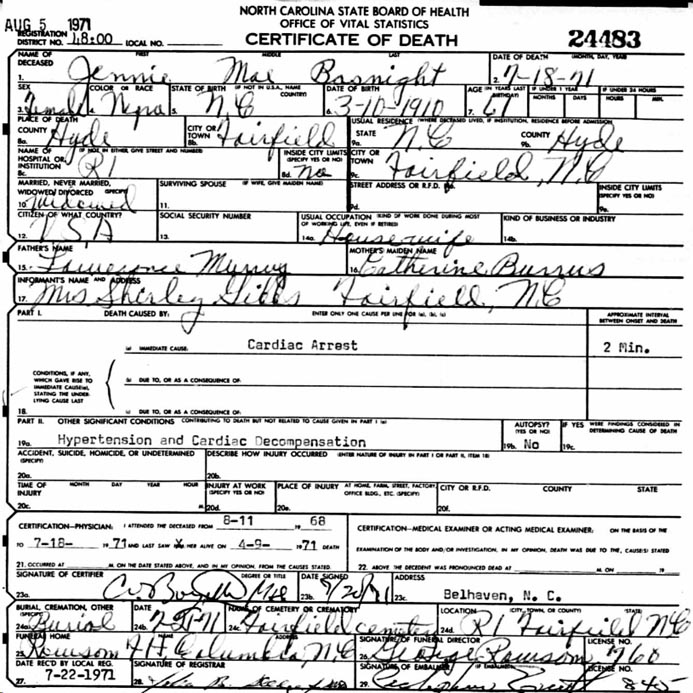 NORTH CAROLINA STATE BOARD OF HEALTH
OFFICE OF VITAL STATISTICS
AUG 5 1971
REGISTRATION DISTRICT NO. 48:00 LOCAL NO. CERTIFICATE OF DEATH 24483
NAME OF DECEASED FIRST MIDDLE LAST DATE OF DEATH (MONTH, DAY, YEAR)
1. Jennie Mae Basnight 2. 7-18-71
SEX COLOR OR RACE STATE OF BIRTH (IF NOT IN U.S.A., NAME COUNTRY) DATE OF BIRTH AGE (IN YEARS LAST BIRTHDAY) IF UNDER 1 YEAR IF UNDER 24 HOURS
MONTHS DAYS HOURS MIN.
3. Female 4. Negro 5. N.C 6. 3-10-1910 7. 61
PLACE OF DEATH USUAL RESIDENCE (WHERE DECEASED LIVED, IF INSTITUTION, RESIDENCE BEFORE ADMISSION)
COUNTY CITY OR TOWN STATE COUNTY
8a. Hyde 8b. Fairfield 9a. N.C 9b. Hyde
NAME OF HOSPITAL OR INSTITUTION (IF NOT IN EITHER, GIVE STREET AND NUMBER) INSIDE CITY LIMITS (SPECIFY YES OR NO) CITY OR TOWN
8c. R1 8d. No 9c. Fairfield, N.C
MARRIED, NEVER MARRIED, WIDOWED, DIVORCED (SPECIFY) SURVIVING SPOUSE (IF WIFE, GIVE MAIDEN NAME) STREET ADDRESS OR R.F.D. NO. INSIDE CITY LIMITS (SPECIFY YES OR NO)
10. Widowed 11. 9d. 9e.
CITIZEN OF WHAT COUNTRY? SOCIAL SECURITY NUMBER USUAL OCCUPATION (KIND OF WORK DONE DURING MOST OF WORKING LIFE, EVEN IF RETIRED) KIND OF BUSINESS OR INDUSTRY
12. USA 13. 14a. Housewife 14b.
FATHER'S NAME MOTHER'S MAIDEN NAME
15. Lawrence Murray 16. Catherine Burrus
INFORMANT'S NAME AND ADDRESS
17. Mrs Shirley Gibbs Fairfield, N.C
PART I. DEATH CAUSED BY: ENTER ONLY ONE CAUSE PER LINE FOR (a), (b), (c) APPROXIMATE INTERVAL BETWEEN ONSET AND DEATH
(a) IMMEDIATE CAUSE: Cardiac Arrest 2 Min.
CONDITIONS, IF ANY, WHICH GAVE RISE TO IMMEDIATE CAUSE(a), STATING THE UNDERLYING CAUSE LAST
(b) DUE TO, OR AS A CONSEQUENCE OF:
18. (c) DUE TO, OR AS A CONSEQUENCE OF:
PART II. OTHER SIGNIFICANT CONDITIONS CONTRIBUTING TO DEATH BUT NOT RELATED TO CAUSE GIVEN IN PART I (a) AUTOPSY? (YES OR NO) IF YES WERE FINDINGS CONSIDERED IN DETERMINING CAUSE OF DEATH
19a. Hypertension and Cardiac Decompensation 19b. No 19c.
ACCIDENT, SUICIDE, HOMICIDE, OR UNDETERMINED (SPECIFY) DESCRIBE HOW INJURY OCCURRED (ENTER NATURE OF INJURY IN PART I OR PART II, ITEM 18)
20a. 20b.
TIME OF INJURY MONTH DAY YEAR HOUR INJURY AT WORK (SPECIFY YES OR NO) PLACE OF INJURY AT HOME, FARM, STREET, FACTORY, OFFICE BLDG., ETC. (SPECIFY) CITY OR R.F.D. COUNTY STATE
20c. M. 20d. 20e. 20f.
CERTIFICATION-PHYSICIAN: I ATTENDED THE DECEASED FROM 8-11 19 68 CERTIFICATION-MEDICAL EXAMINER OR ACTING MEDICAL EXAMINER: ON THE BASIS OF THE
TO 7-18- 19 71 AND LAST SAW HER ALIVE ON 4-9- 19 71 DEATH EXAMINATION OF THE BODY AND/OR INVESTIGATION, IN MY OPINION, DEATH WAS DUE TO THE, CAUSE(S) STATED
21. OCCURRED AT M. ON THE DATE STATED ABOVE, AND IN MY OPINION, FROM THE CAUSES STATED. 22. ABOVE. THE DECEDENT WAS PRONOUNCED DEAD AT M. ON 19
SIGNATURE OF CERTIFIER DEGREE OR TITLE DATE SIGNED ADDRESS
23a. 23b. 7/20/71 23c. Belhaven, N. C.
BURIAL, CREMATION, OTHER (SPECIFY) DATE NAME OF CEMETERY OR CREMATORY LOCATION (CITY, TOWN, OR COUNTY) (STATE)
24a. Burial 24b. 7-21-71 24c. Fairfield cemetery 24d. R1 Fairfield N.C
FUNERAL HOME ADDRESS SIGNATURE OF FUNERAL DIRECTOR LICENSE NO.
25. Rowsom F H Columbia, N.C 26. George Rowsom 760
DATE REC'D BY LOCAL REG. SIGNATURE OF REGISTRAR SIGNATURE OF EMBALMER IF EMBALMED LICENSE NO.
27. 7-22-1971 28. 29. 845